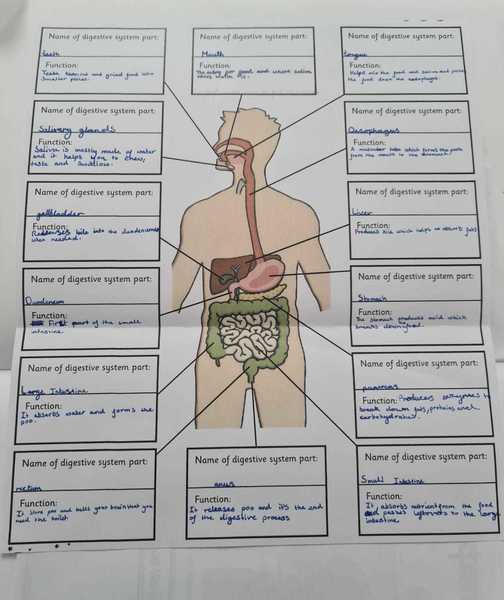 Name of digestive system part:
teeth
Function:
Teeth tear and grind food into
smaller pieces.
Name of digestive system part:
Mouth
Function:
The entry for food and where saliva
Name of digestive system part:
tongue
Function:
Helps mix the food and saliva and
the food down the oesophagus.
Name of digestive system part:
Salivery glands
Function:
Saliva is mostly made of water
and it helps you to chew,
taste and swallow.
Name of digestive system part:
Oesophagus
Function:
A muscular tube which forms the path
from the mouth to the stomach.
Name of digestive system part:
gallbladder
Function:
bile into the
when needed.
Name of digestive system part:
Liver
Function:
Produces bile which helps to absorb fats
Name of digestive system part:
Duodenum
Function:
First part of the small
intestine.
Name of digestive system part:
Stomach
Function:
The stomach produces acid which
breaks down food.
Name of digestive system part:
Large Intestine
Function:
It absorbs water and forms the
poo.
Name of digestive system part:
pancreas
Function: Produces enzymes to
break down fats, proteins and
carbohydrates.
Name of digestive system part:
rectum
Function:
It store poo and tells your brain that you
need the toilet
Name of digestive system part:
anus
Function:
It releases poo and it's the end
of the digestive process
Name of digestive system part:
Small Intestine
Function:
It absorbs nutrient from the food
passes leftovers to the large
intestine